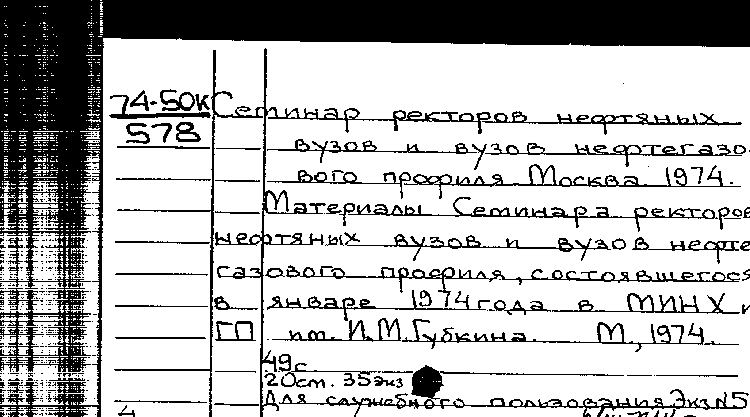 74-50К Семинар ректоров нефтяных
578 вузов и вузов нефтегазо-
вого профиля Москва 1974.
Материалы Семинара ректоров
нефтяных вузов и вузов нефте
газового профиля, состоявшегося
в январе 1974 года в МИНХ и
ГП им. И.М.Губкина. М., 1974.
49с
20см. 35экз
Для служебного пользования Экз№5
4